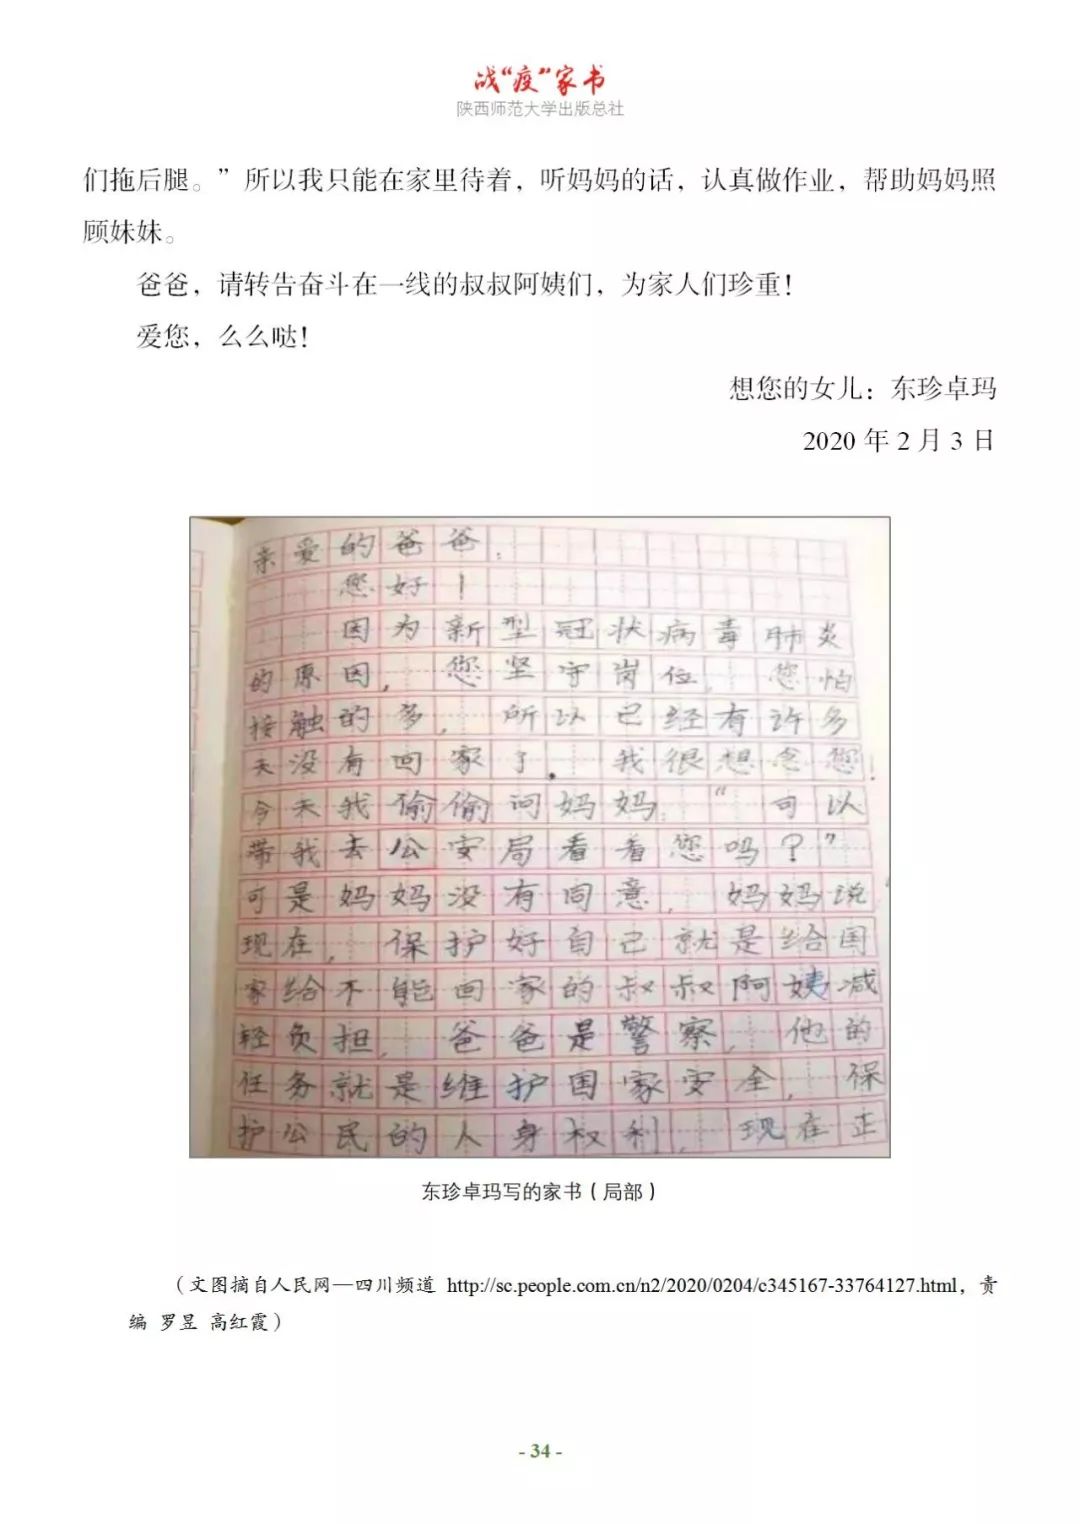 战“疫”家书
陕西师范大学出版总社
们拖后腿。”所以我只能在家里待着，听妈妈的话，认真做作业，帮助妈妈照
顾妹妹。
爸爸，请转告奋斗在一线的叔叔阿姨们，为家人们珍重！
爱您，么么哒！
想您的女儿：东珍卓玛
2020 年 2 月 3 日
亲爱的爸爸：
您好！
因为新型冠状病毒肺炎
的原因，您坚守岗位，您怕
接触的多，所以已经有许多
天没有回家了。我很想念您！
今天我偷偷问妈妈：“可以
带我去公安局看看您吗？”
可是妈妈没有同意，妈妈说
现在，保护好自己就是给国
家给不能回家的叔叔阿姨减
轻负担，爸爸是警察，他的
任务就是维护国家安全，保
护公民的人身权利，现在正
东珍卓玛写的家书（局部）
（文图摘自人民网—四川频道 http://sc.people.com.cn/n2/2020/0204/c345167-33764127.html，责
编 罗昱 高红霞）
- 34 -